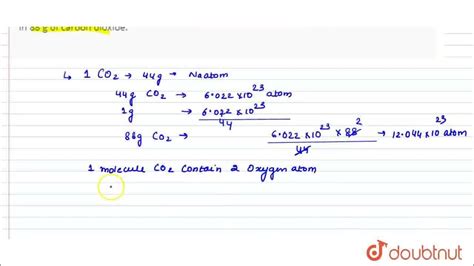 in 88 g of carbon dioxide.
↳ 1 CO₂ → 44g → Na atom
44g CO₂ → 6.022 × 10²³ atom
1g → 6.022 × 10²³ / 44
88g CO₂ → 6.022 × 10²³ × 88 2 / 44 → 12.044 × 10²³ atom
1 molecule CO₂ contain 2 oxygen atom
doubtnut